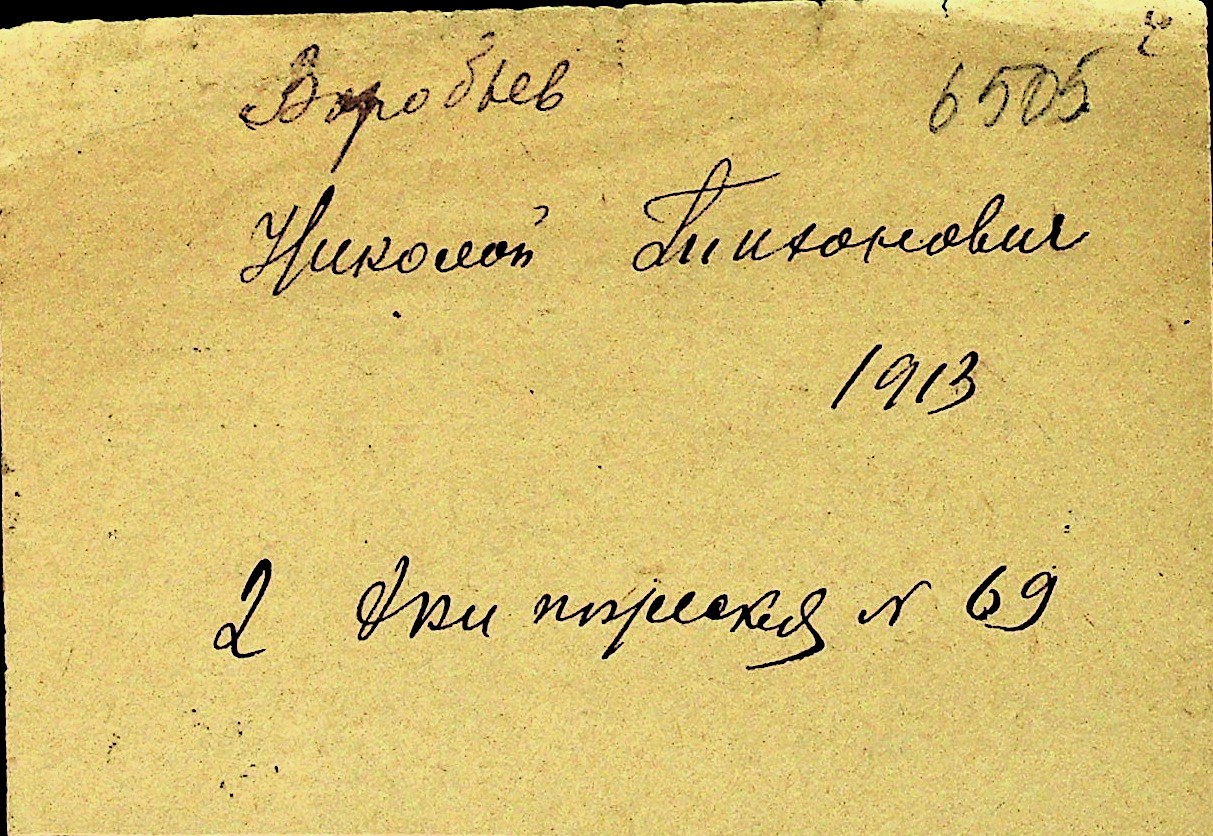 Воробьев 6505
Николай Тихонович
1913
2 № 69